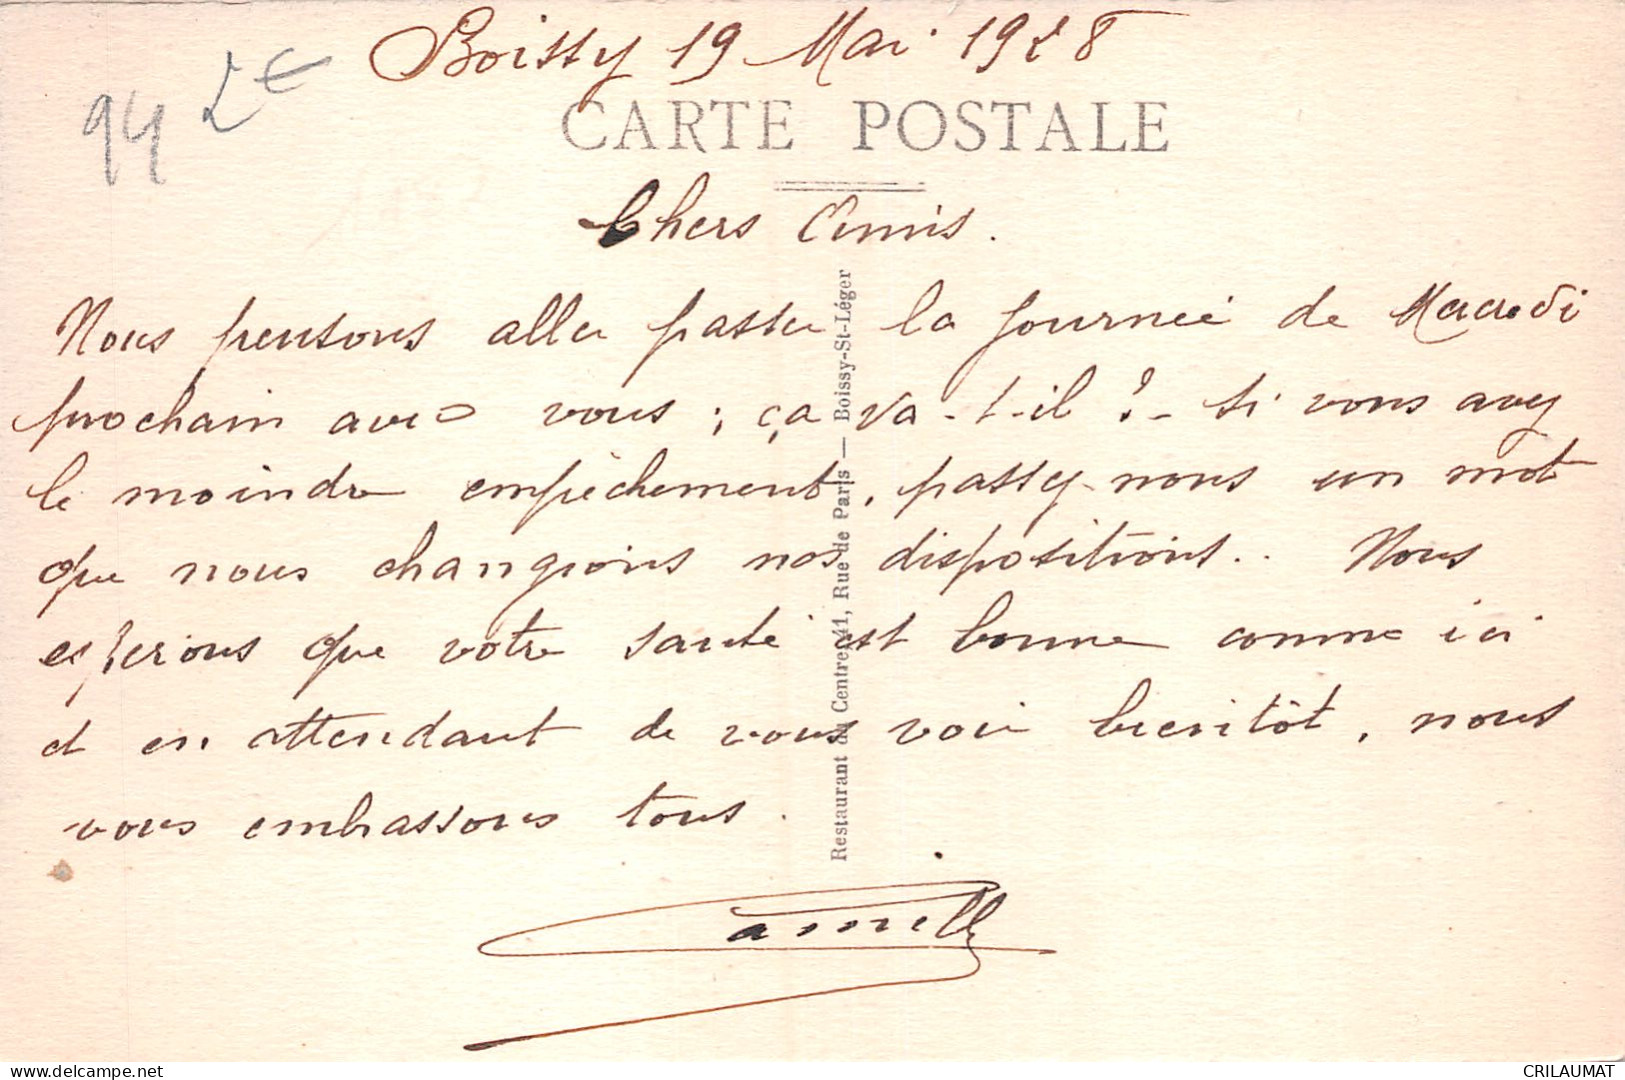 Boissy 19 Mai 1928
94 2€
CARTE POSTALE
Chers Amis.
Nous pensons aller passer la journée de Mercredi
prochain avec vous ; ça va-t-il ? - si vous avez
le moindre empêchement, passez-nous un mot
que nous changions nos dispositions.. Nous
espérons que votre santé est bonne comme ici
et en attendant de vous voir bientôt, nous
vous embrassons tous.
Camille
Restaurant du Centre, 41, Rue de Paris — Boissy-St-Léger
www.delcampe.net
CRILAUMAT